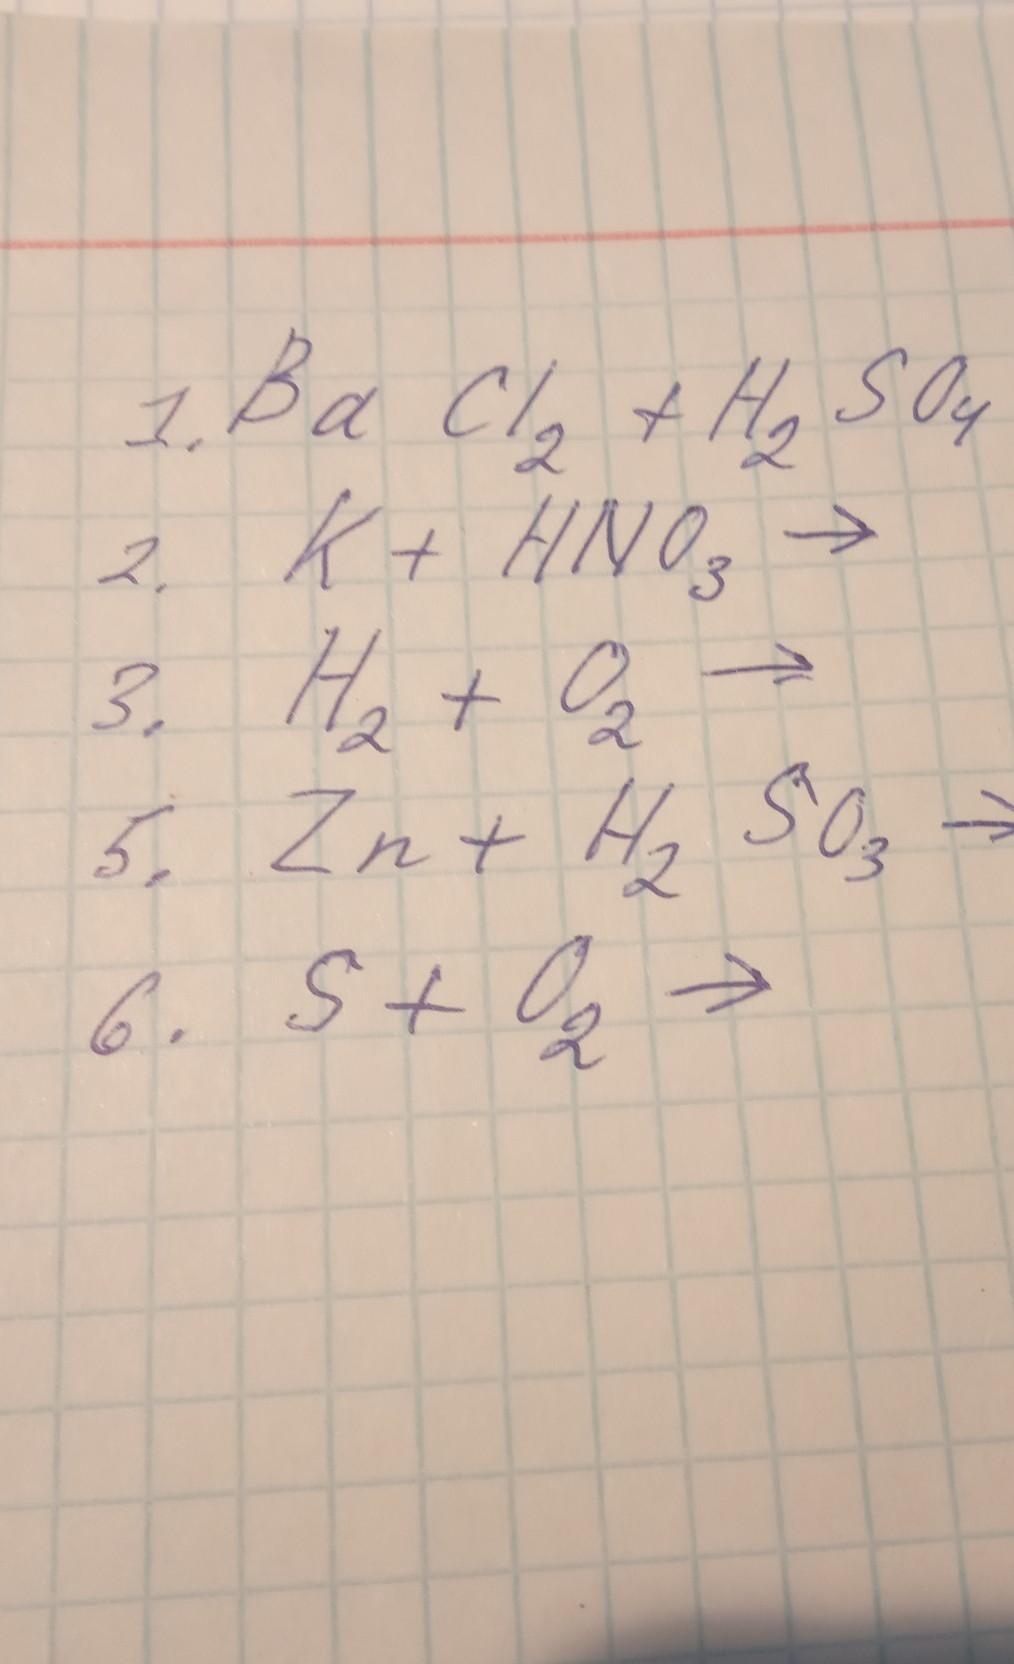 1. BaCl₂ + H₂SO₄
2. K + HNO₃ →
3. H₂ + O₂ →
5. Zn + H₂SO₃ →
6. S + O₂ →